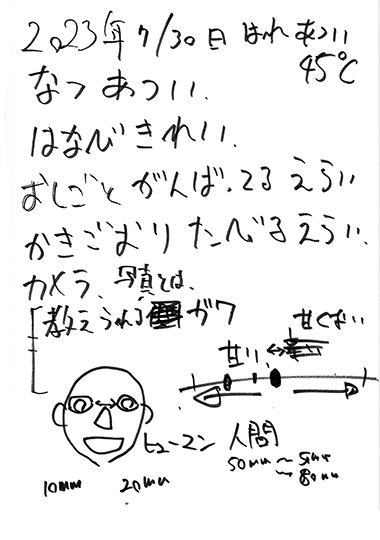 2023年7/30日 はれ あつい
45℃
なつ あつい.
はなび きれい.
おしごと がんばってる えらい
かきごおり たべる えらい.
カメラ、写真とは、
教えられる ガワ
甘い 甘くない
ヒューマン 人間
10mm 20mm
50mm 〜 5mm
→ 80mm